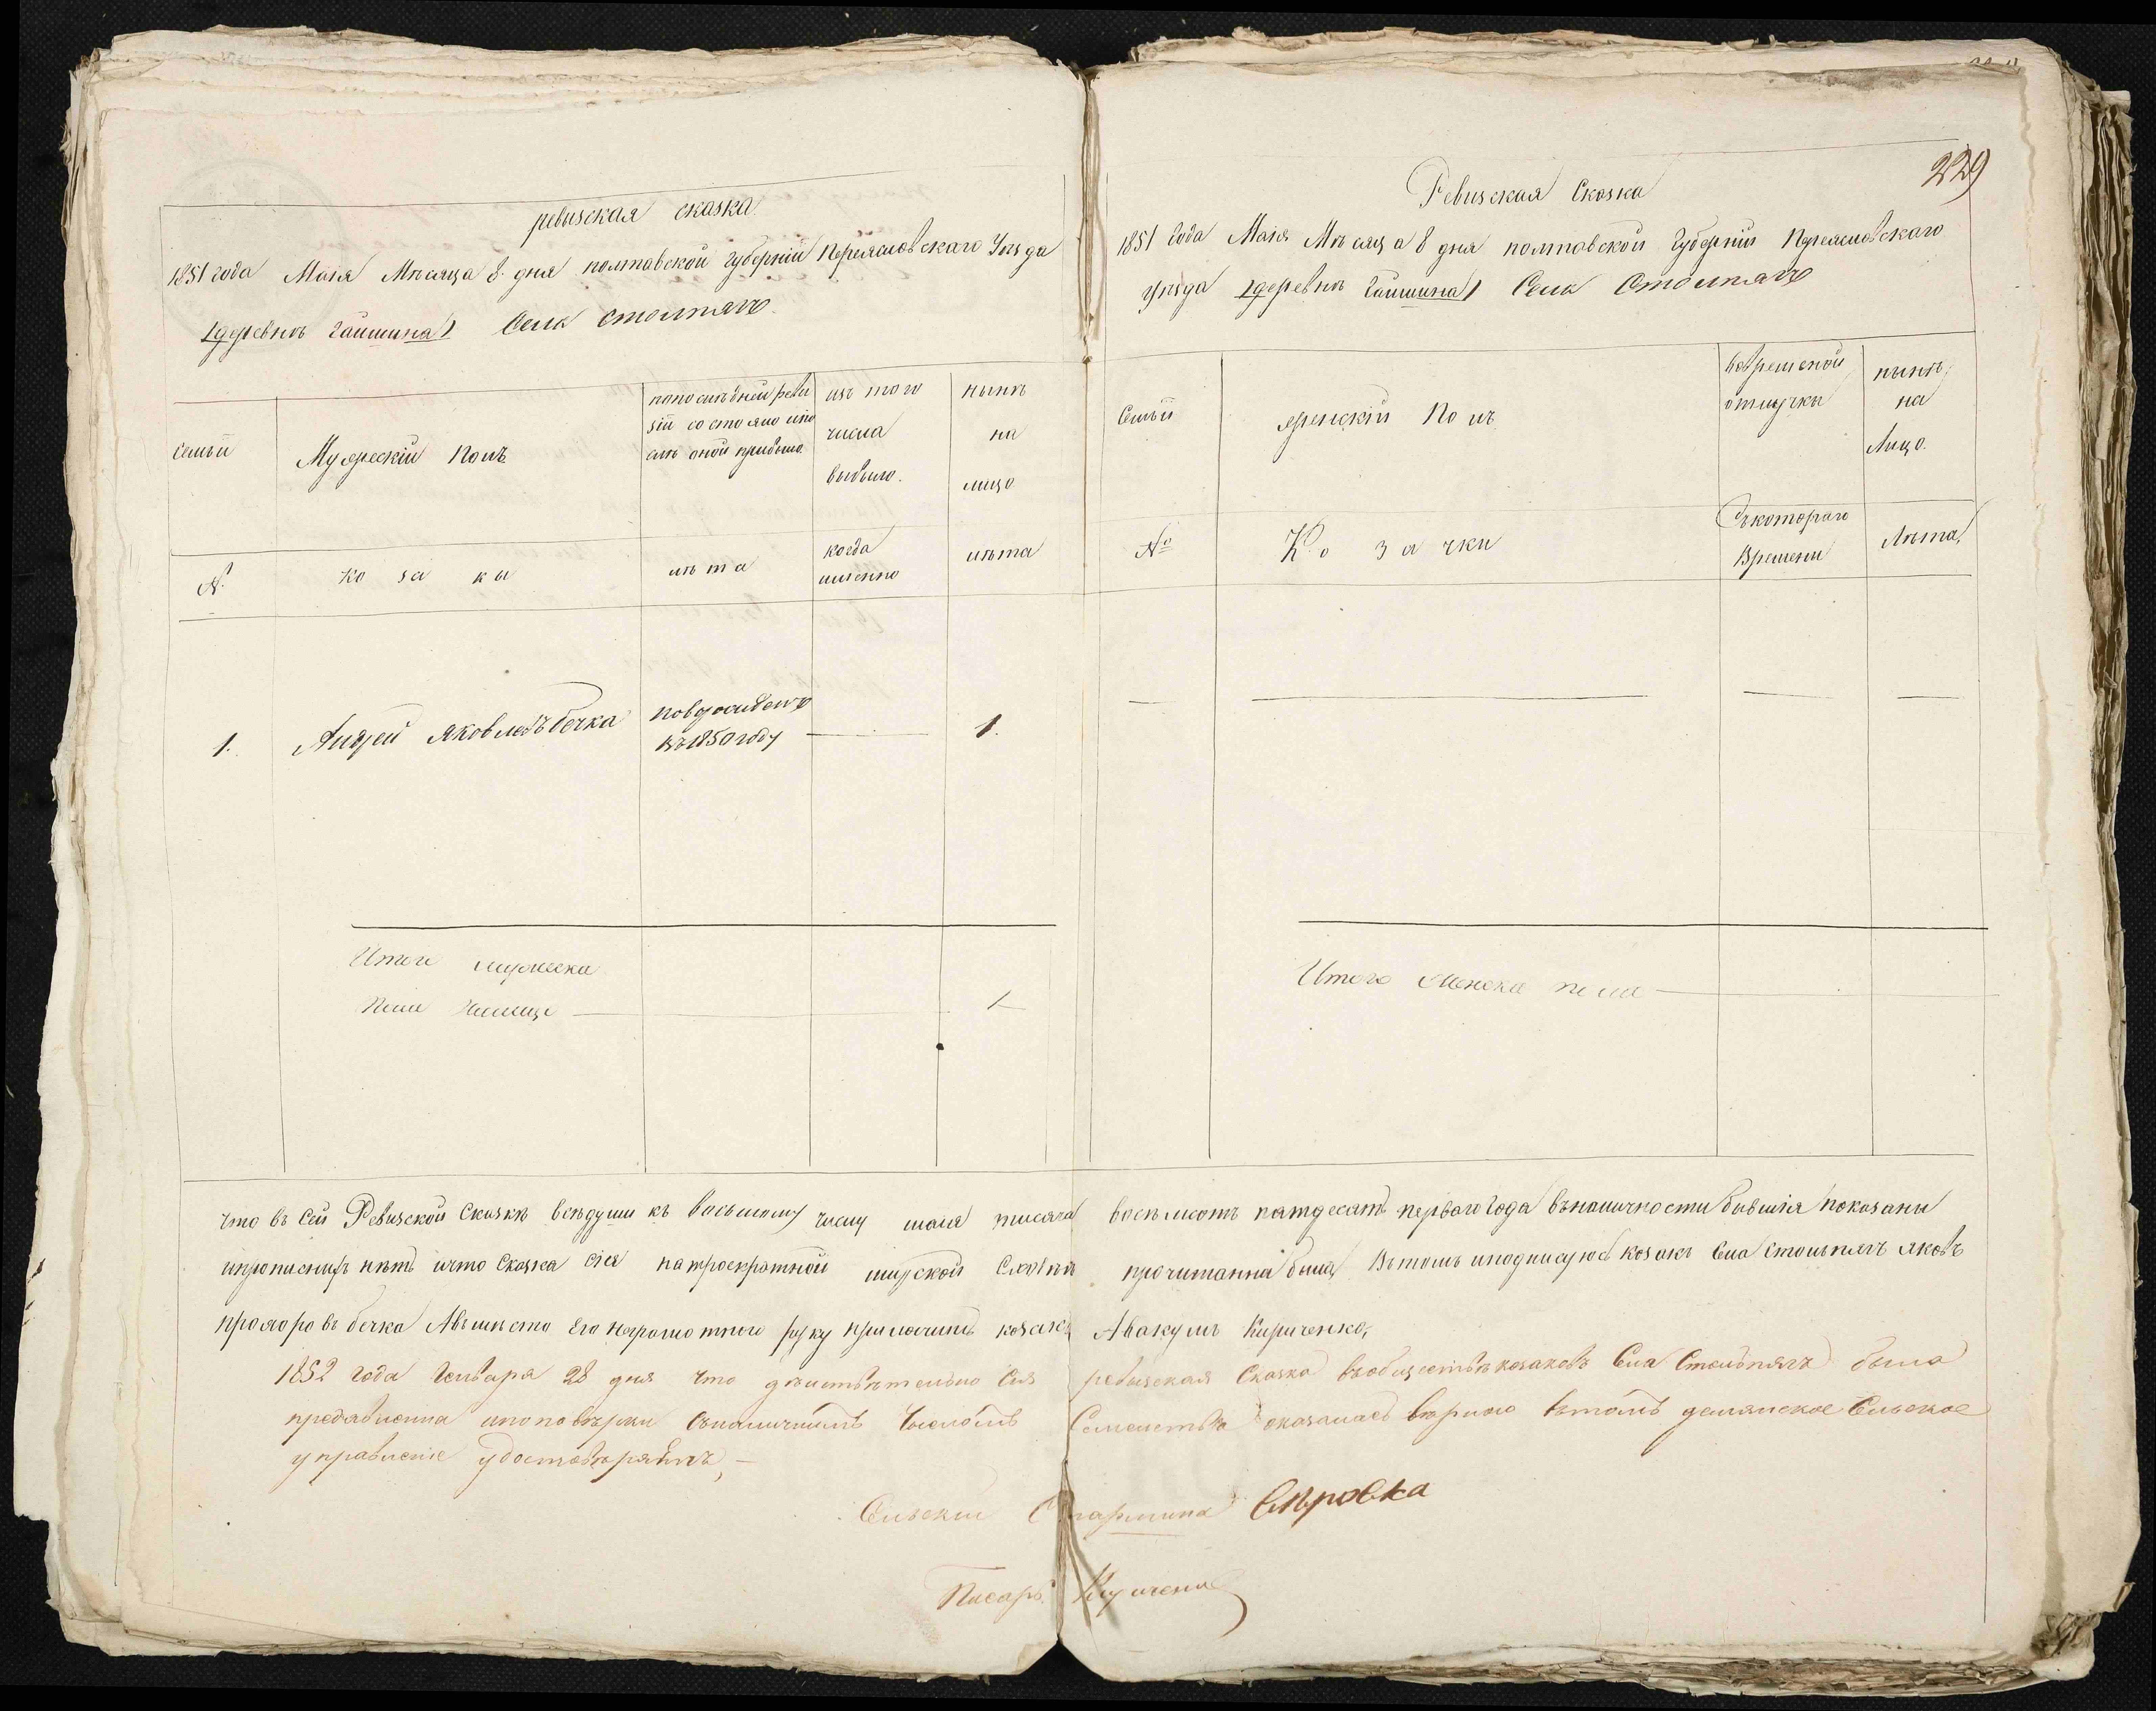 ревизская сказка
1851 года Маія Мѣсяца 8 дня полтавской губерніи Переясловскаго Уѣзда
/деревнѣ Гайшина/ Села Столпягъ
семьи
Мужескій Полъ
по последней реви
зіи состояло или по
слѣ оной прибыло.
изъ того
числа
выбыло.
нынѣ
на
лицо
№
ко за ки
лѣта
когда
именно
лѣта
1.
Андрей Яковлевъ Бечка
новорожденъ
въ 1850 году
1.
Итого мужеска
Пола налицо
1
229
Ревизская Сказка
1851 года Маія Мѣсяца 8 дня полтавской губерніи Переясловскаго
уѣзда /деревнѣ Гайшина/ Села Столпягъ
Семьи
женскій Полъ
во временной
отлучки
нынѣ
на
Лицо.
№
Ко за чки
Съ котораго
Времени
Лѣта,
Итого женска пола
что въ сей Ревизской Сказкѣ всѣ души къ Восьмому числу маія тысяча восемьсотъ пятдесятъ перваго года въ наличности бывшія показаны
и прописныхъ нѣтъ и что Сказка сія на троекратной мирской Сходкѣ прочитанна была, въ томъ и подписуюсь козакъ Села Столпягъ Яковъ
Бечка А вмѣсто Его неграмотного руку приложилъ козакъ Авакумъ Кириченко,
1852 года Генваря 28 дня что дѣиствѣтельно Сія ревизская Сказка въ обществѣ козаковъ Села Столбпягъ была
предявленна и по повѣрки съ наличнымъ Числомъ Семейства оказалась вѣрною въ томъ демянское Сельское
управленіе удостовѣряетъ,
Сельскій Старшина Сѣровка
Писарь